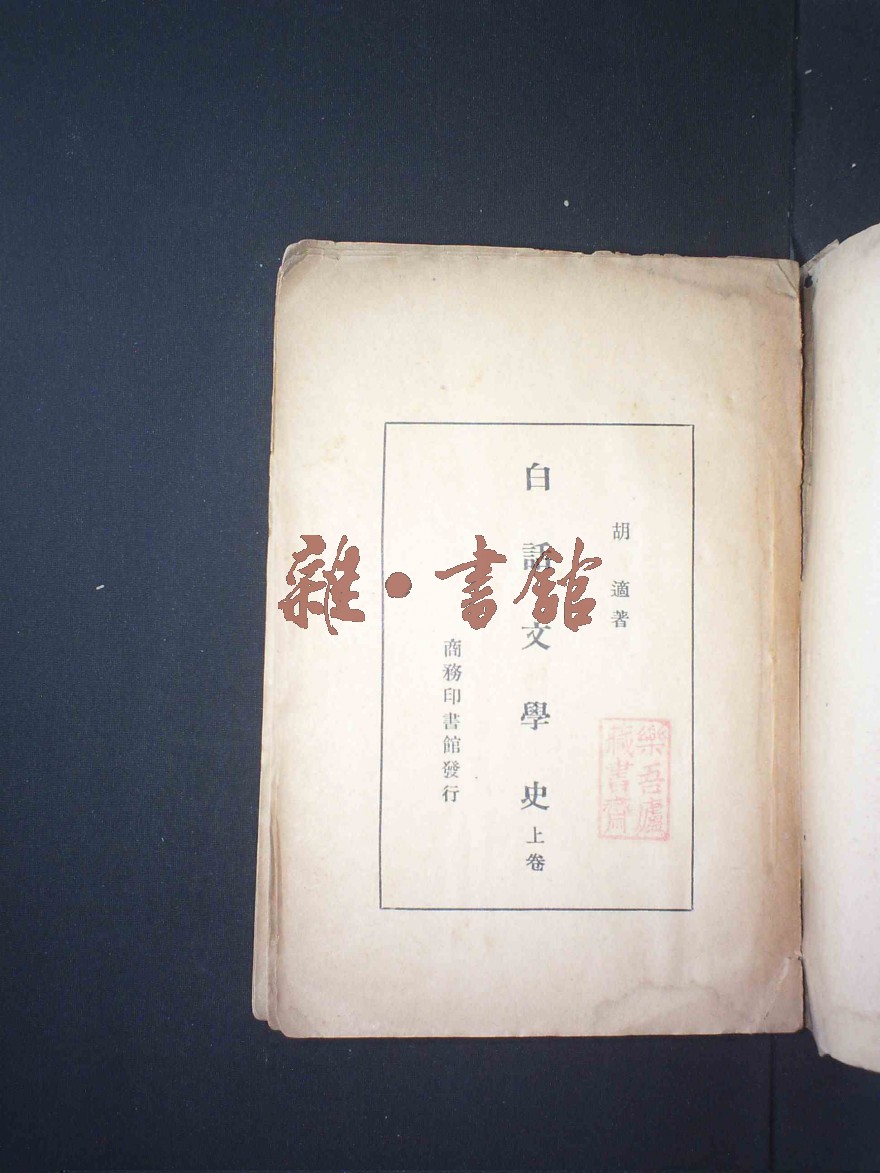 胡適著
白話文學史上卷
商務印書館發行
樂吾廬
藏書齋
雜·書館